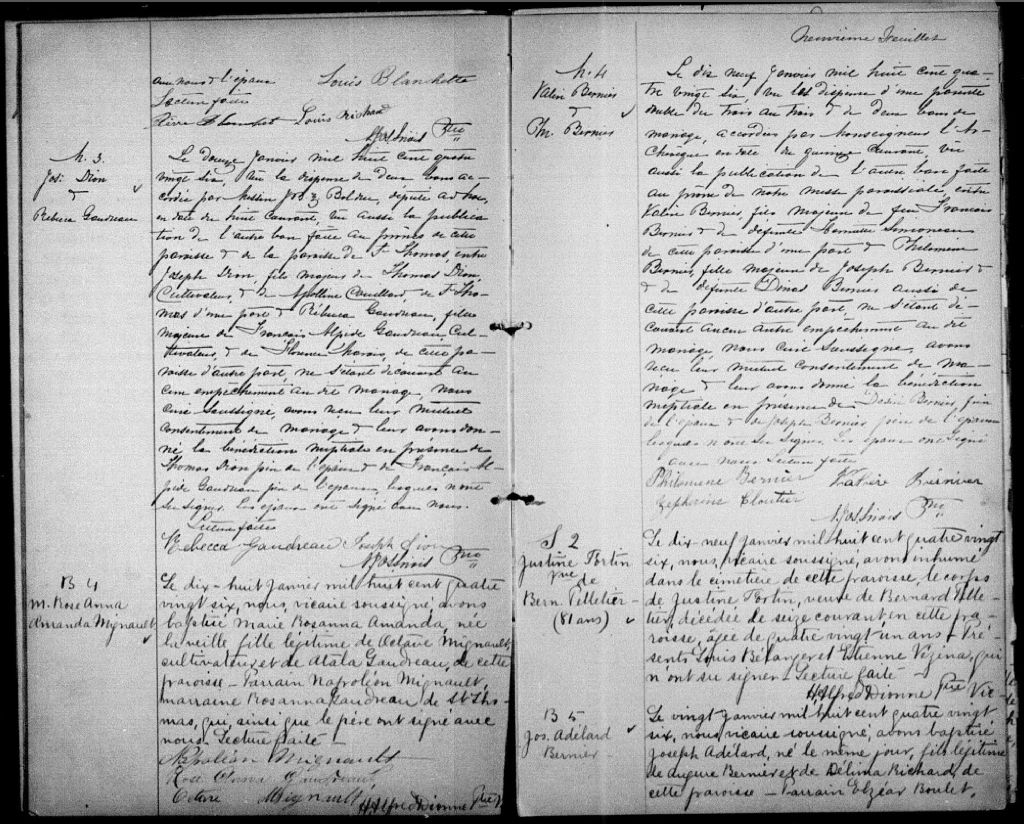 avec nous & l'épaux Louis Blanchette
Lecture faite
Louis Richard
Ptre
M. 3.
Jos: Dion
&
Rébecca Gaudreau
Le douze Janvier mil huit cent quatre
vingt six, Vu la dispense de deux bans ac-
cordée par Messire député ad hoc,
en date du huit Courant, Vu aussi la publica
tion de l'autre ban faite au prône de cette
paroisse & de la paroisse de St Thomas, entre
Joseph Dion, fils majeur de Thomas Dion,
Cultivateur, & de Apolline Couillard, de St Tho-
mas d'une part & Rébecca Gaudreau, fille
majeure de Francois Alfride Gaudreau, Cul-
tivateur, & de Florence de cette pa-
roisse d'autre part, ne s'étant découvert Au
cun empêchement au dit mariage, Nous
Curé Soussigné, avons recu leur mutuel
Consentement de mariage & leur avons don-
né la bénédiction nuptiale en présence de
Thomas Dion père de l'épaux & de Francois Al-
fride Gaudreau père de l'épause, lesquels n'ont
su signer. Les épaux ont signé avec nous.
Lecture faite
Rebecca Gaudreau Joseph Dion
Ptre
B 4
M. Rose Anna
Amanda Mignault
Le dix-huit janvier mil huit cent quatre
vingt six, nous, vicaire soussigné, avons
baptisé Marie Rosanna Amanda, née
la veille, fille légitime de Octave Mignault,
cultivateur, et de Atala Gaudreau, de cette
paroisse – Parrain Napoléon Mignault,
marraine Rosanna Gaudreau de St Tho-
mas, qui, ainsi que le père ont signé avec
nous – Lecture faite –
Napoléon Mignault
Rose Anna Gaudreau
Octave Mignault H Alfred Dionne Ptre V
Neuvième Feuillet
M. 4
Valère Bernier
&
Ph. Bernier
Le dix neuf Janvier mil huit cent qua-
tre vingt six, vu la dispense d'une parenté
du trois au trois & de deux bans de
mariage, accordées par Monseigneur l'Ar-
chevêque en date du quinze Courant, Vu
aussi la publication de l'autre ban faite
au prône de notre messe paroissiale, entre
Valère Bernier, fils majeur de feu Francois
Bernier & de défunte Simoneau
de cette paroisse d'une part & Philomène
Bernier, fille majeure de Joseph Bernier &
& de défunte Bernier aussi de
cette paroisse d'autre part, ne s'étant dé-
couvert aucun autre empêchement au dit
mariage, Nous Curé Soussigné, avons
recu leur mutuel Consentement de ma-
riage & leur avons donné la bénédiction
nuptiale en présence de Bernier,
de l'épaux & de Joseph Bernier père de l'épause
lesquels n'ont su signer. Les épaux ont signé
avec nous Lecture faite
Philomène Bernier Valère Bérnier
Zéphirine Cloutier
Ptre
S 2
Justine Fortin
Vve
de
Bern. Pelletier
(81 ans)
Le dix-neuf janvier mil huit cent quatre vingt
six, nous, vicaire soussigné, avons inhumé
dans le cimetière de cette paroisse, le corps
de Justine Fortin, veuve de Bernard Pelle-
tier, décédée de seize courant en cette pa-
roisse, âgée de quatre vingt un ans – Pré-
sents Louis Bélanger et Etienne Vézina, qui
n'ont su signer – Lecture faite –
H Alfred Dionne Ptre Vic
B 5
Jos. Adélard
Bernier
Le vingt janvier mil huit cent quatre vingt
six, nous, vicaire soussigné, avons baptisé
Joseph Adélard, né le même jour, fils légitime
de Bernier et de Délima Richard, de
cette paroisse – Parrain Elzéar Boulet,